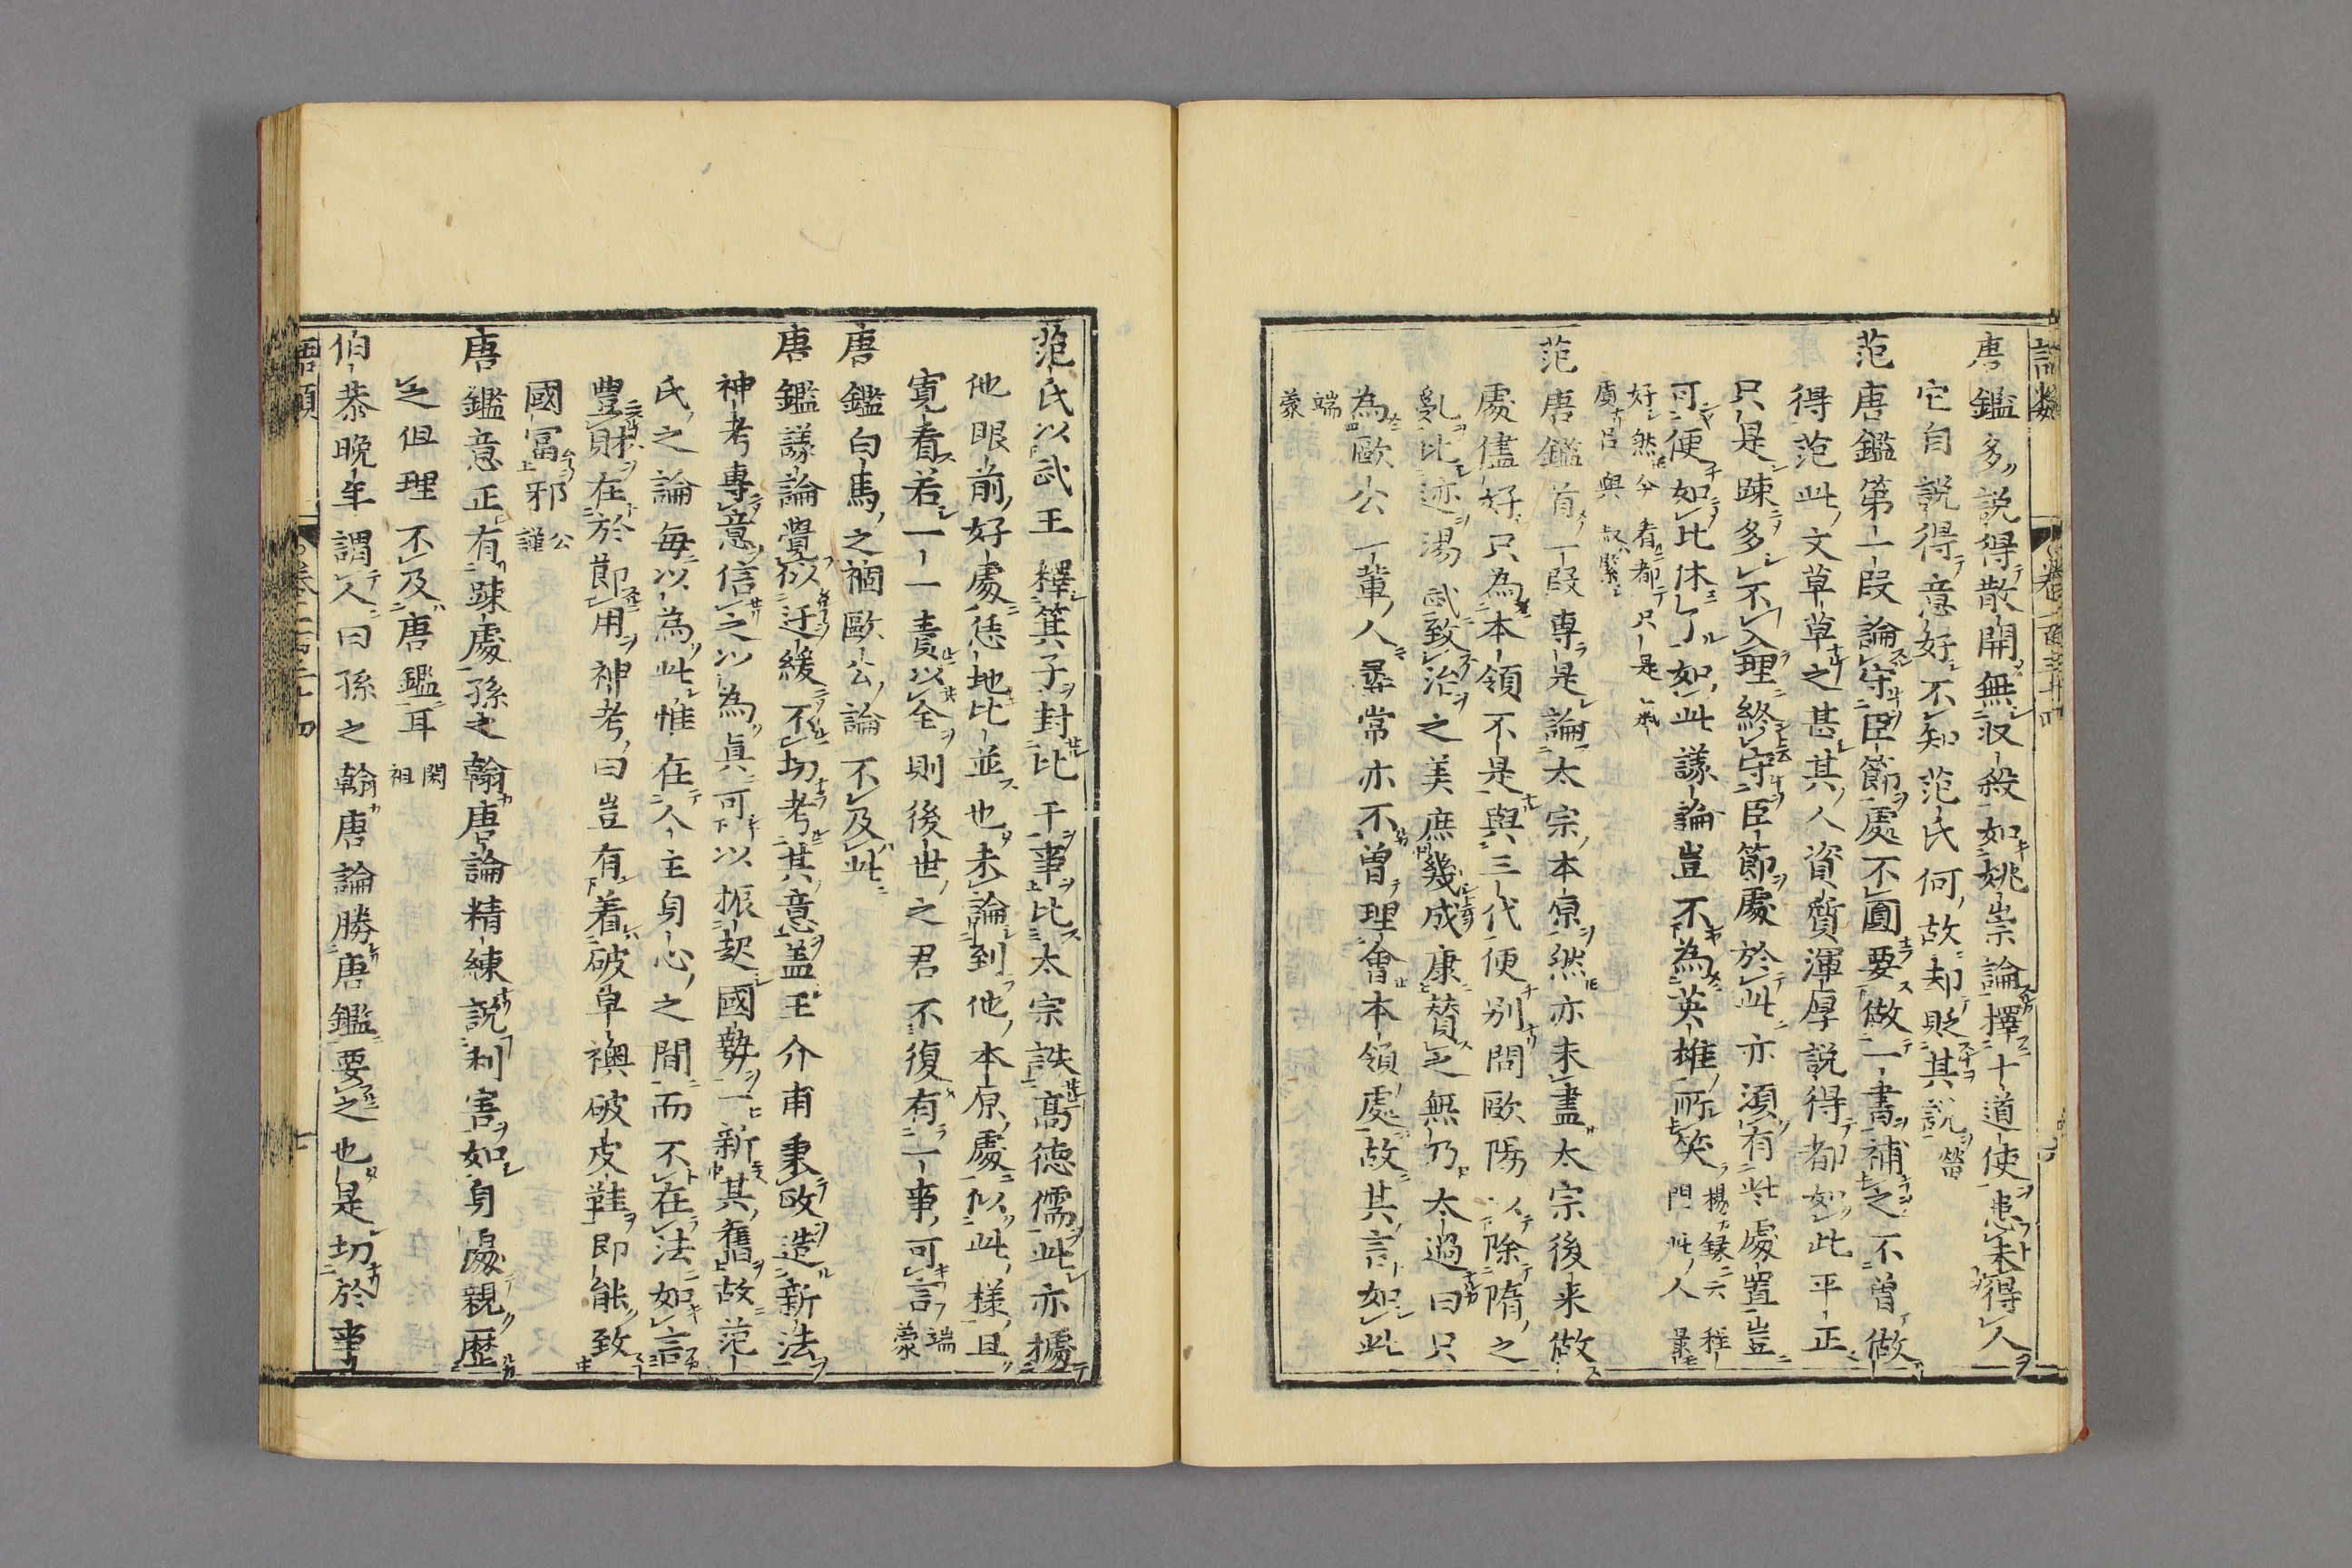 語類 卷一百三十四 六
唐鑑多說得散開無収殺如姚崇論擇十道使患未得人
它自說得意好不知范氏何故却貶其說 㽦
范唐鑑第一段論守臣節處不圓要做一書補之不曾做
得范此文草草之甚其人資質渾厚說得都如此平正
只是疎多不入理終守臣節處於此亦須有此處置豈
可便如此休了如此議論豈不為英雄所笑 楊錄云程門此人最
好然今看都只是氣
質呂與叔緊
范唐鑑首一段專是論太宗本原然亦未盡太宗後来做
處儘好只為本領不是與三代便別問歐陽以除隋之
亂比迹湯武致治之美庶幾成康贊之無乃太過曰只
為歐公一輩人尋常亦不曾理會本領處故其言如此
端蒙
范氏以武王釋箕子封比干事比太宗誅高德儒此亦據
他眼前好處恁地比並也未論到他本原處似此様且
寛看若一一責以全則後世之君不復有一事可言 端蒙
唐鑑白馬之禍歐公論不及此
唐鑑議論覺似迂緩不切考其意盖王介甫秉政造新法
神考專意信之以為真可以振起國勢一新其舊故范
氏之論每以為此惟在人主身心之間而不在法如言
豊財在於節用神考曰豈有着破皁襖破皮鞋即能致
國冨邪 公謹
唐鑑意正有疎處孫之翰唐論精練說利害如身處親歷
之但理不及唐鑑耳 閎祖
伯恭晚年謂人曰孫之翰唐論勝唐鑑要之也是切於事
語類 卷一百三十四 七